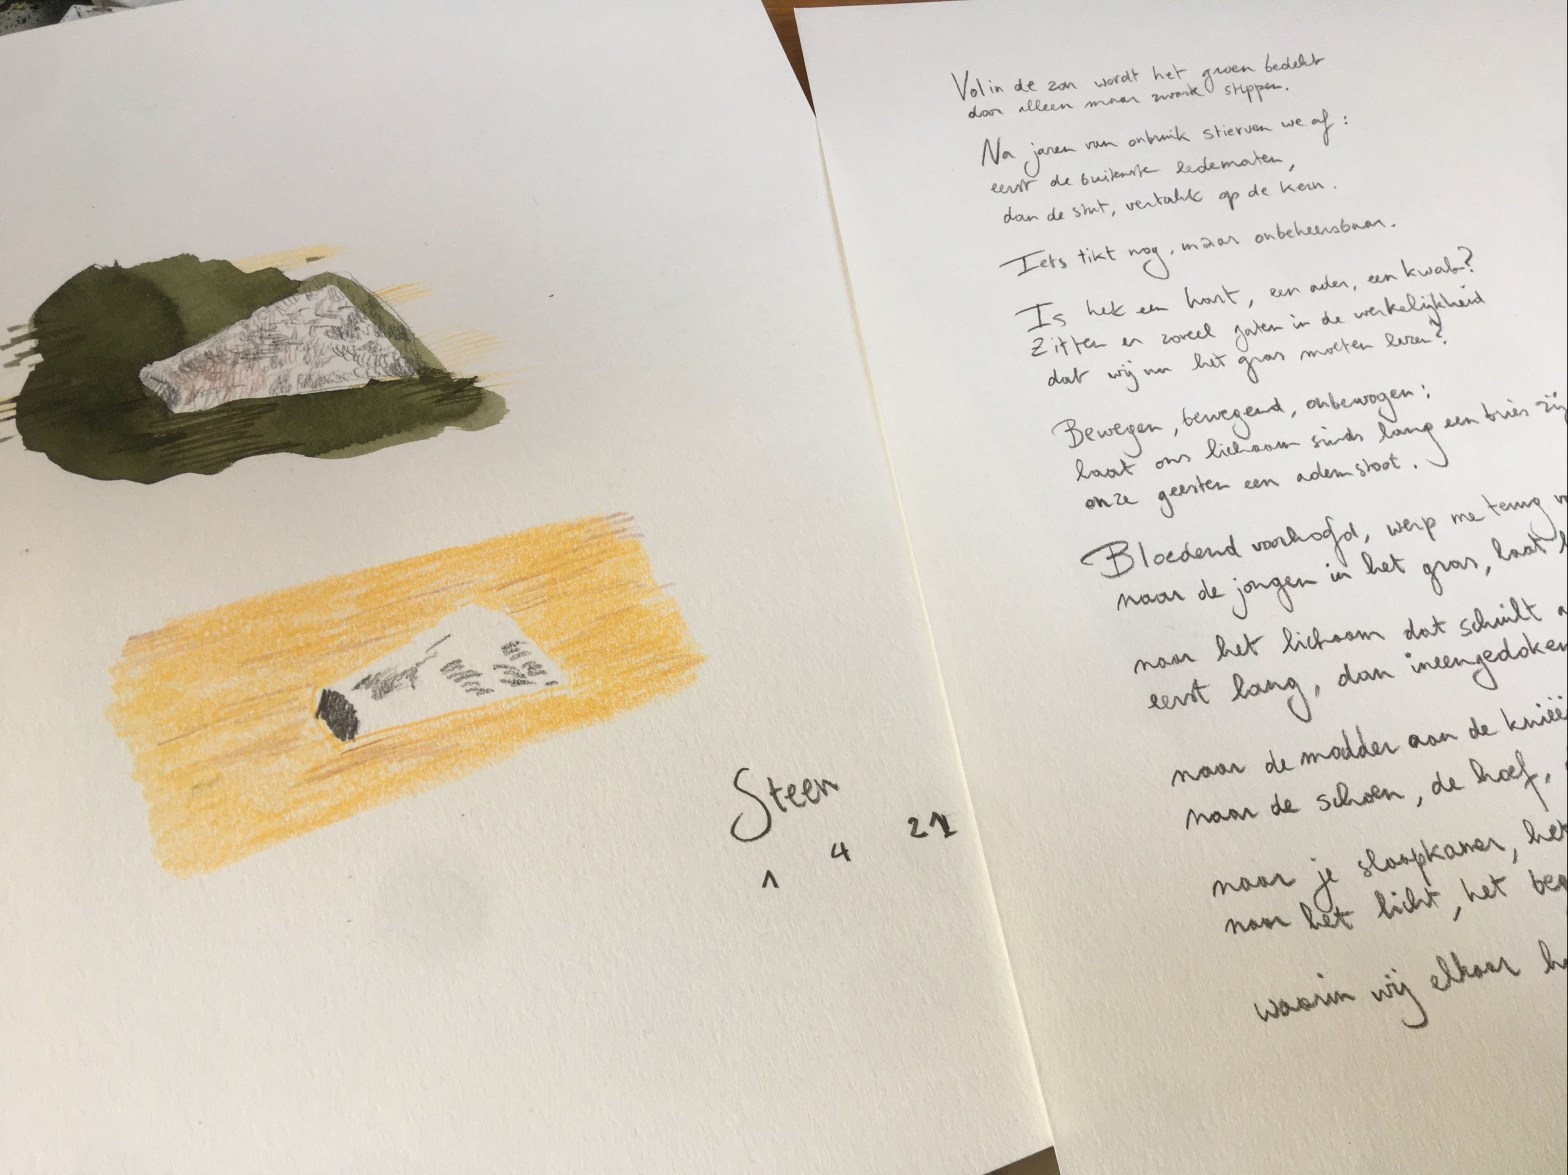 Steen
1 4 21
Vol in de zon wordt het groen bedekt
door alleen maar zwarte stippen.
Na jaren van onbruik stierven we af:
eerst de buitenste ledematen,
dan de stut, vertakt op de kern.
Iets tikt nog, maar onbeheersbaar.
Is het een hart, een ader, een kwab?
Zitten er zoveel gaten in de werkelijkheid
dat wij nu het gras moeten lezen?
Bewegen, bewegend, onbewogen:
laat ons lichaam sinds lang een bries zij
onze geesten een ademstoot.
Bloedend voorhoofd, werp me terug
naar de jongen in het gras, laat
naar het lichaam dat schuilt
eerst lang, dan ineengedoken
naar de modder aan de knieë
naar de schoen, de hoef,
naar je slaapkamer, het
naar het licht, het
waarin wij elkaar